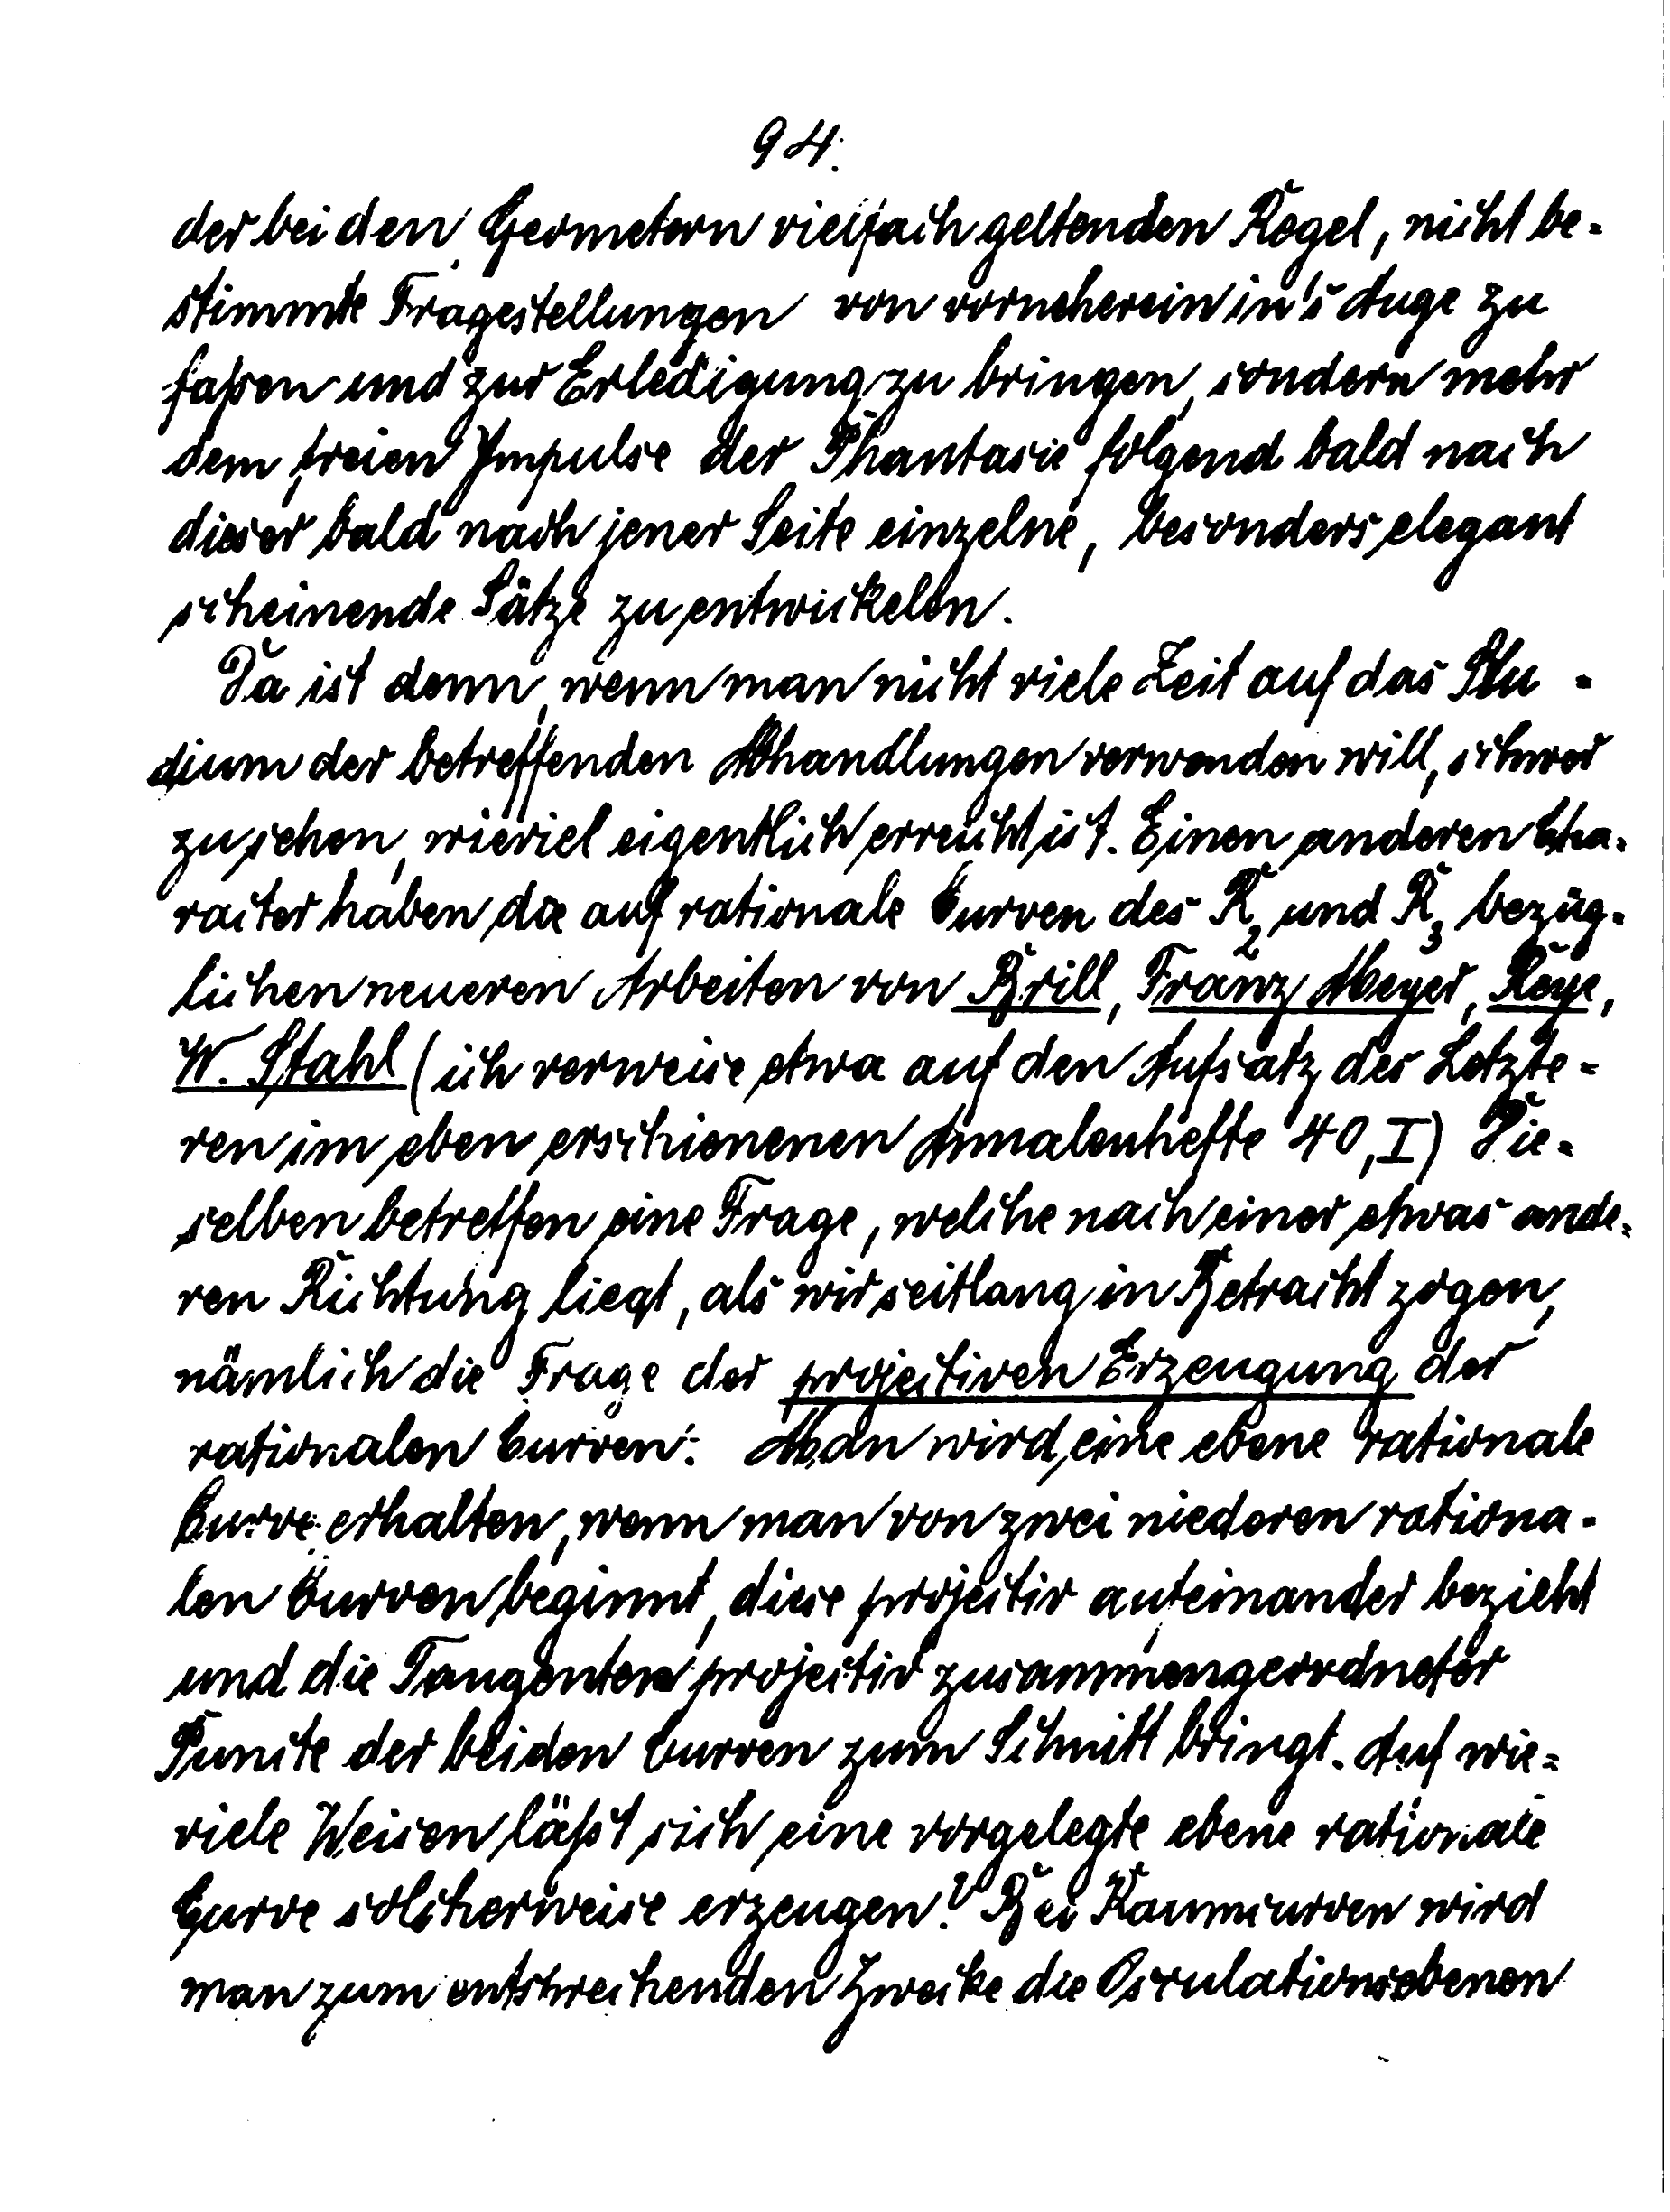 94.
der bei den Geometern vielfach geltenden Regel, nicht be-
stimmte Fragestellungen von vorneherein in's Auge zu
faßen und zur Erledigung zu bringen, sondern mehr
dem freien Impulse der Phantasie folgend bald nach
dieser bald nach jener Seite einzelne, besonders elegant
scheinende Sätze zu entwickeln.
Da ist denn, wenn man nicht viele Zeit auf das Stu-
dium der betreffenden Abhandlungen verwenden will, schwer
zu sehen, wieviel eigentlich erreicht ist. Einen anderen Cha-
racter haben die auf rationale Curven des R₂ und R₃ bezüg-
lichen neueren Arbeiten von Brill, Franz Meyer, Reye,
W. Stahl (ich verweise etwa auf den Aufsatz des Letzte-
ren im eben erschienenen Annalenhefte 40, I) Die-
selben betreffen eine Frage, welche nach einer etwas ande-
ren Richtung liegt, als wir seitlang in Betracht zogen,
nämlich die Frage der projectiven Erzeugung der
rationalen Curven. Man wird eine ebene rationale
Curve erhalten, wenn man von zwei niederen rationa-
len Curven beginnt, diese projectiv aufeinander bezieht
und die Tangenten projectiv zusammengeordneter
Puncte der beiden Curven zum Schnitt bringt. Auf wie-
viele Weisen läßt sich eine vorgelegte ebene rationale
Curve solcherweise erzeugen? Bei Raumcurven wird
man zum entsprechenden Zwecke die Osculationsebenen